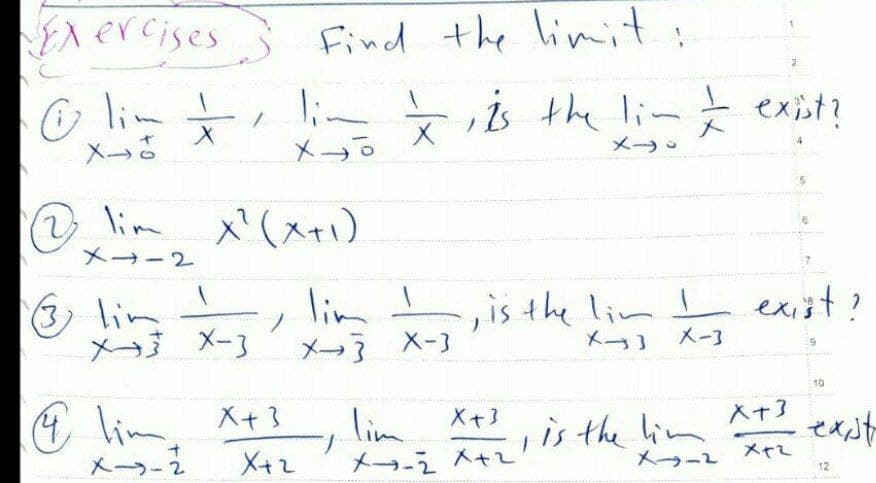 Exercises ; Find the limit :
① lim x→0⁺ 1/x , lim x→0⁻ 1/x , is the lim x→0 1/x exist?
② lim x→-2 x²(x+1)
③ lim x→3⁺ 1/(x-3) , lim x→3⁻ 1/(x-3) , is the lim x→3 1/(x-3) exist?
④ lim x→-2⁺ (x+3)/(x+2) , lim x→-2⁻ (x+3)/(x+2) , is the lim x→-2 (x+3)/(x+2) exist